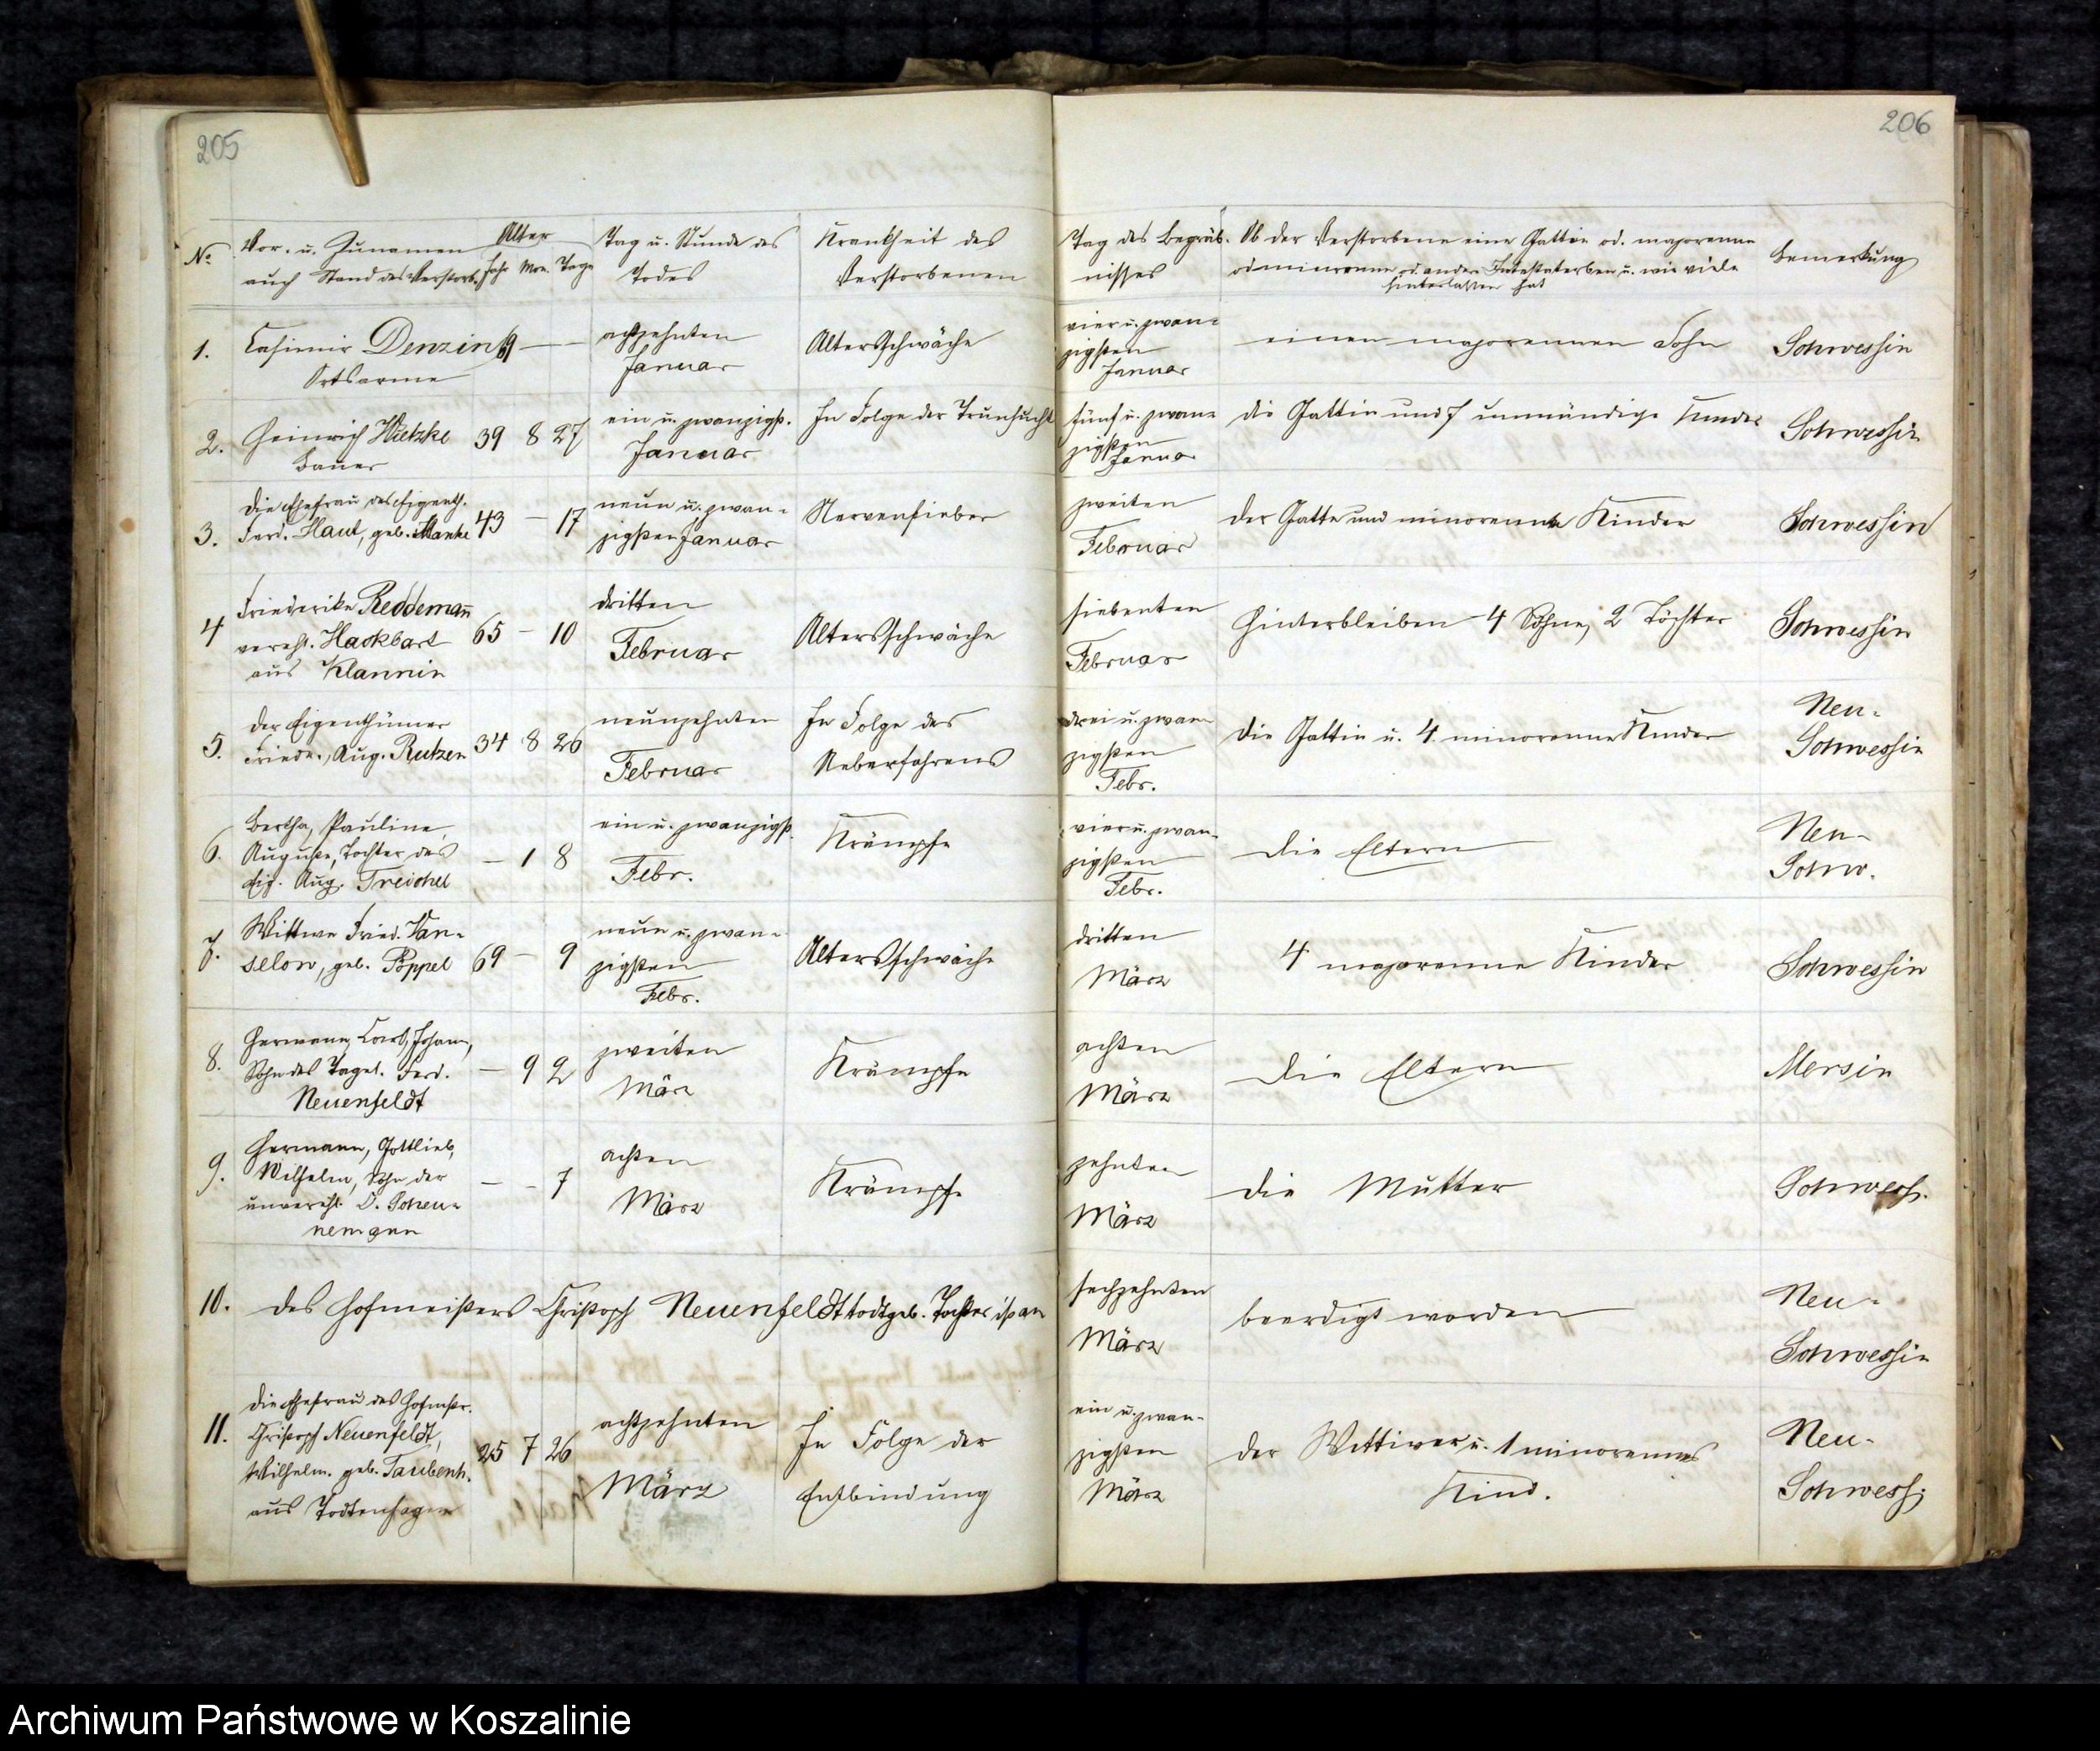 205
206
No
Vor- u. Zunamen
auch Stand des Verstorb.
Alter
Jahr Mon. Tage
Tag u. Stunde des
Todes
Krankheit des
Verstorbenen
Tag des Begräb-
nisses
Ob der Verstorbene eine Gattin od. majorenne
od minorenne od. andere Intestaterben u. wie viele
hinterlassen hat
Bemerkung
1.
Casimir Denzin
Ortsarme
69 — —
achtzehnten
Januar
Altersschwäche
vier u. zwan-
zigsten
Januar
einen majorennen Sohn
Schwessin
2.
Heinrich Wietzke
Bauer
39 8 27
ein u. zwanzigst.
Januar
In Folge der Trunsucht
fünf u. zwan-
zigsten
Januar
die Gattin und 7 unmündige Kinder
Schwessin
3.
die Ehefrau des Eigenth.
Ferd. Haut, geb. Manke
43 — 17
neun u. zwan-
zigsten Januar
Nervenfieber
zweiten
Februar
der Gatte und minorenne Kinder
Schwessin
4
Friederike Reddemann
vereh. Hackbart
aus Klannin
65 — 10
dritten
Februar
Altersschwäche
siebenten
Februar
Hinterbleiben 4 Söhne, 2 Töchter
Schwessin
5.
der Eigenthümer
Friedr., Aug. Rutzen
34 8 26
neunzehnten
Februar
In Folge des
Ueberfahrens
drei u. zwan-
zigsten
Febr.
die Gattin u. 4 minorenne Kinder
Neu-
Schwessin
6.
Bertha, Pauline,
Auguste, Tochter des
Eig. Aug. Treichel
— 1 8
ein u. zwanzigst.
Febr.
Krämpfe
vier u. zwan-
zigsten
Febr.
die Eltern
Neu-
Schw.
7.
Wittwe Fried. Van-
selow, geb. Pöppel
69 — 9
neun u. zwan-
zigsten
Febr.
Altersschwäche
dritten
März
4 majorenne Kinder
Schwessin
8.
Hermann, Carl, Johann,
Sohn des Tagel. Ferd.
Neuenfeldt
— 9 2
zweiten
März
Krämpfe
achten
März
die Eltern
Mersin
9.
Hermann, Gottlieb,
Wilhelm, Sohn der
unvereh. D. Scheu-
nemann
— — 7
achten
März
Krämpfe
zehnten
März
die Mutter
Schwess.
10.
des Hofmeisters Christoph Neuenfeldt todtgeb. Tochter ist am
sechzehnten
März
beerdigt worden
Neu-
Schwessin
11.
die Ehefrau des Hofmstr.
Christoph Neuenfeldt,
Wilhelm. geb. Taubenh.
aus Todtenhagen
25 7 26
achtzehnten
März
In Folge der
Entbindung
ein u. zwan-
zigsten
März
der Wittwer u. 1 minorennes
Kind.
Neu-
Schwess.
Archiwum Państwowe w Koszalinie